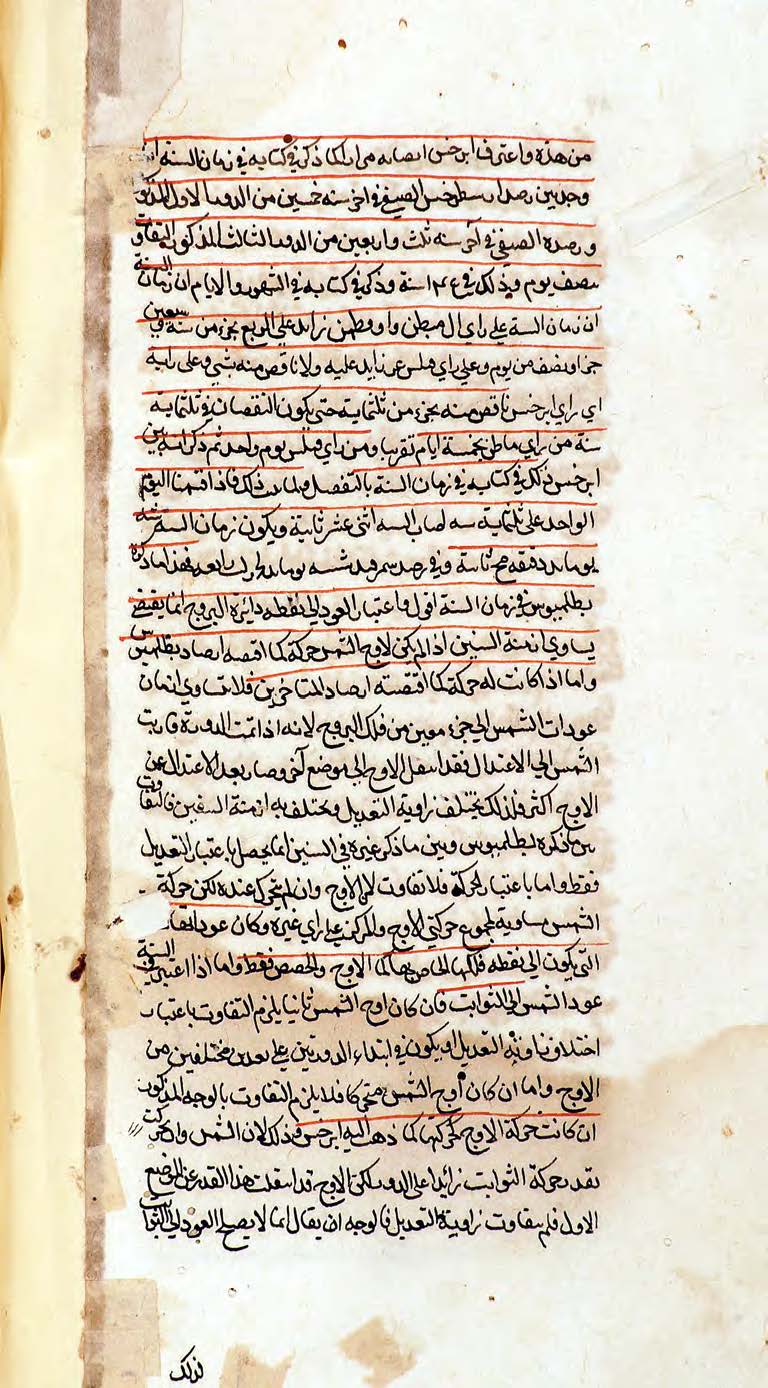 من هذه واعترف ابرخس ايضا به مرارا كما ذكر في كتابه في زمان السنة
وجد بين رصد ارسطرخس الصيفي في آخر سنة خمسين من الدور الاول المذكور
ورصده الصيفي في آخر سنة ثلث واربعين من الدور الثالث المذكور التفاوت
نصف يوم وذلك في سنة وذكر في كتابه في الشهور والايام ان زمان السنة
ان زمان السنة على راي ال مبطن واوقطمن زايد على الربع بجزء من ستة وسبعين
جزءا ونصف من يوم وعلى راي فلبس غير زايد عليه ولا ناقص منه بشي وعلى رايه
اي راي ابرخس ناقص منه بجزء من ثلثماية حتى يكون النقصان في ثلثماية
سنة من راي ماطن بخمسة ايام تقريبا ومن راي فيلبس يوم واحد ثم ذكر انه بين
ابرخس ذلك في كتابه في زمان السنة بالتفصيل ولما ثبت ذلك فاذا قسمنا اليوم
الواحد على ثلثماية سنة اصاب السنة اثنى عشر ثانية ويكون زمان السنة شسه
يوما يد دقيقة مح ثانية وفي رصد فهذا ما ذكره
بطلميوس في زمان السنة اقول واعتبار العود الى نقطة دائرة البروج انما يقتضي
يساوي ازمنة السنين اذا لم يكن لاوج الشمس حركة كما اقتضه ارصاد بطلميوس
واما اذا كانت له حركة كما اقتضته ارصاد المتاخرين فلا تتساوى ازمان
عودات الشمس الى جزء معين من فلك البروج لانه اذا تمت الدورة قاربت
الشمس الى الاعتدال فقد انتقل الاوج الى موضع آخر وصار بعد الاعتدال عن
الاوج اكثر فلذلك يختلف زاوية التعديل ويختلف به ازمنة السنين فالتفاوت
بين ما ذكره بطلميوس وبين ما ذكر غيره في السنين انما يحصل باعتبار التعديل
فقط واما باعتبار الحركة فلا تفاوت لان الاوج وان لم يتحرك عنده لكن حركة
الشمس مساوية لمجموع حركتي الاوج والمركز على راي غيره وكان عوداتها
التي يكون الى نقطه فلكها الخاص بها كالاوج والحضيض فقط واما اذا اعتبر في السنة
عود الشمس الى الثوابت فان كان اوج الشمس ثابتا يلزم التفاوت باعتبار
اختلاف زاوية التعديل اذ يكون في ابتداء الدورتين على بعدين مختلفين من
الاوج واما ان كان اوج الشمس متحركا فلا يلزم التفاوت بالوجه المذكور
ان كانت حركة الاوج كحركتها كما ذهب اليه ابرخس وذلك لان الشمس وان تحركت
بقدر حركة الثوابت زائدا على الدور لكن الاوج قد انتقلت هذا القدر عن الموضع
الاول فلم يتفاوت زاوية التعديل فالوجه ان يقال انما لا يصلح العود الى الثوابت
لذلك